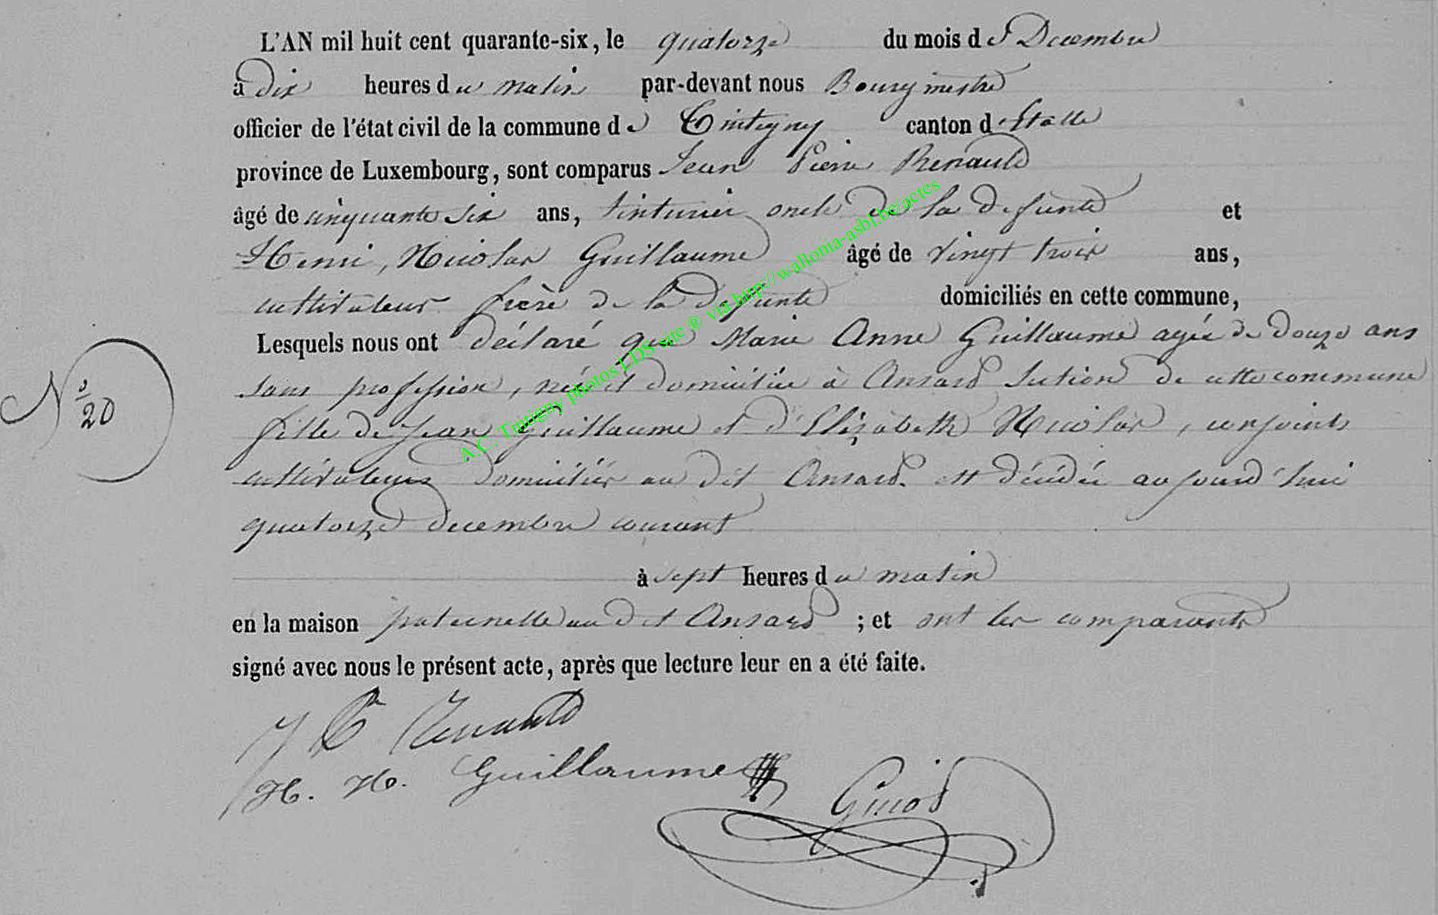 L'AN mil huit cent quarante-six, le quatorze du mois de Decembre
à dix heures du matin par-devant nous Bourgmestre
officier de l'état civil de la commune de Tintigny canton d'Etalle
province de Luxembourg, sont comparus Jean Pierre Renauld
âgé de cinquante six ans, tinturier oncle de la defunte et
Henri, Nicolas Guillaume âgé de vingt trois ans,
cultivateur frère de la defunte domiciliés en cette commune,
Lesquels nous ont déclaré que Marie Anne Guillaume agée de douze ans
sans profession, née et domiciliée à Ansard section de cette commune
N° 20
fille de Jean Guillaume et d'Elizabeth Nicolas, conjoints
cultivateurs domiciliés au dit Ansard. est décédée aujourd'hui
quatorze decembre courant
à sept heures du matin
en la maison paternelle au dit Ansard ; et ont les comparants
signé avec nous le présent acte, après que lecture leur en a été faite.
J P Renauld
H. N. Guillaume
Guiot
A.C. Tintigny photos LDS site ® via http://wallonia-asbl.be/actes